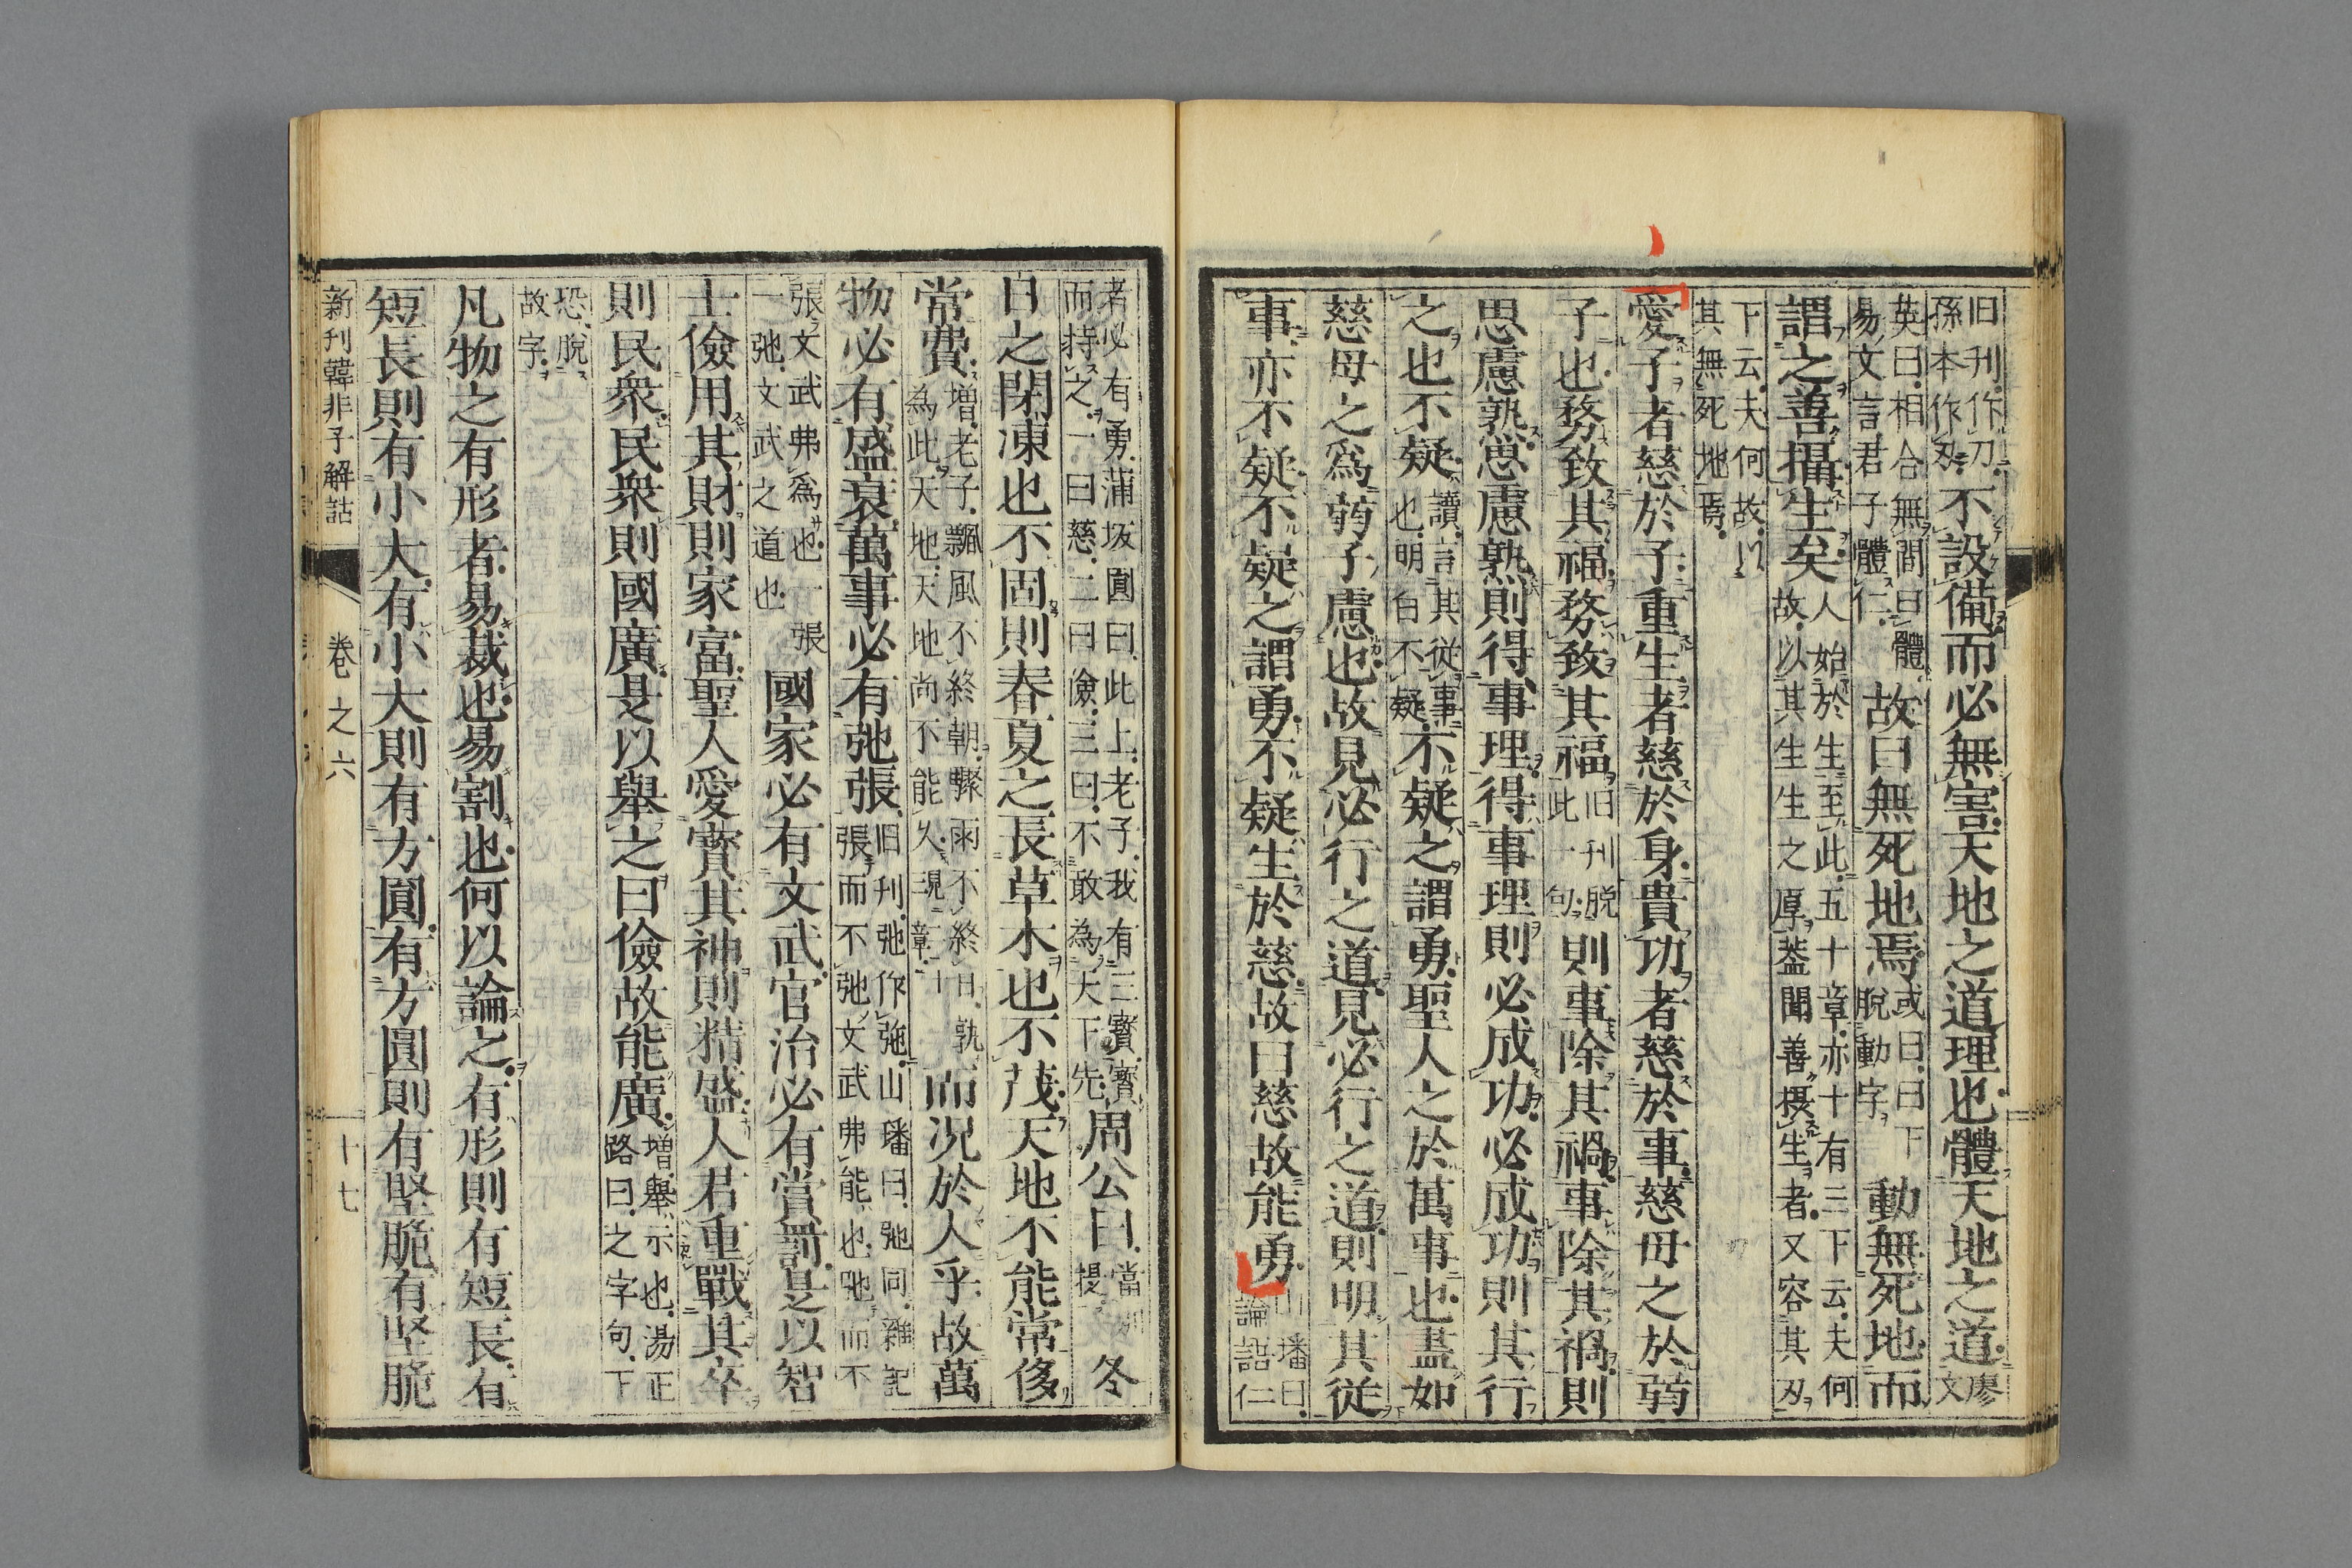 旧刊作刀孫本作刄不設備而必無害天地之道理也體天地之道廖文
英曰相合無間曰體易文言君子體仁故曰無死地焉或曰曰下脫動字動無死地而
謂之善攝生矣人始於生至此五十章亦十有三下云夫何故以其生生之厚蓋聞善摂生者又容其刃
下云夫何故以其無死地焉
愛子者慈於子重生者慈於身貴功者慈於事慈母之於弱
子也務致其福務致其福旧刊脫此一句則事除其禍事除其禍則
思慮熟思慮熟則得事理得事理則必成功必成功則其行
之也不疑讀言其從事也明白不疑不疑之謂勇聖人之於萬事也盡如
慈母之爲弱子慮也故見必行之道見必行之道則明其從
事亦不疑不疑之謂勇不疑生於慈故曰慈故能勇山璠曰論語仁
者必有勇蒲坂圓曰此上老子我有三寳寳而持之一曰慈二曰儉三曰不敢為天下先周公曰冬
日之閉凍也不固則春夏之長草木也不茂天地不能常侈
常費增老子飄風不終朝驟雨不終日孰為此天地天地尚不能久而況於人乎故萬
物必有盛衰萬事必有弛張旧刊弛作弥山璠曰弛同雜記張而不弛文武弗能也弛而不
張文武弗為也一張一弛文武之道也國家必有文武官治必有賞罰是以智
士儉用其財則家富聖人愛寳其神則精盛人君重戰其卒
則民衆民衆則國廣是以舉之曰儉故能廣增舉示也湯正路曰之字句下
恐脫故字
凡物之有形者易裁也易割也何以論之有形則有短長有
短長則有小大有小大則有方圓有方圓則有堅脆有堅脆
新刊韓非子解詁 卷之六 十七